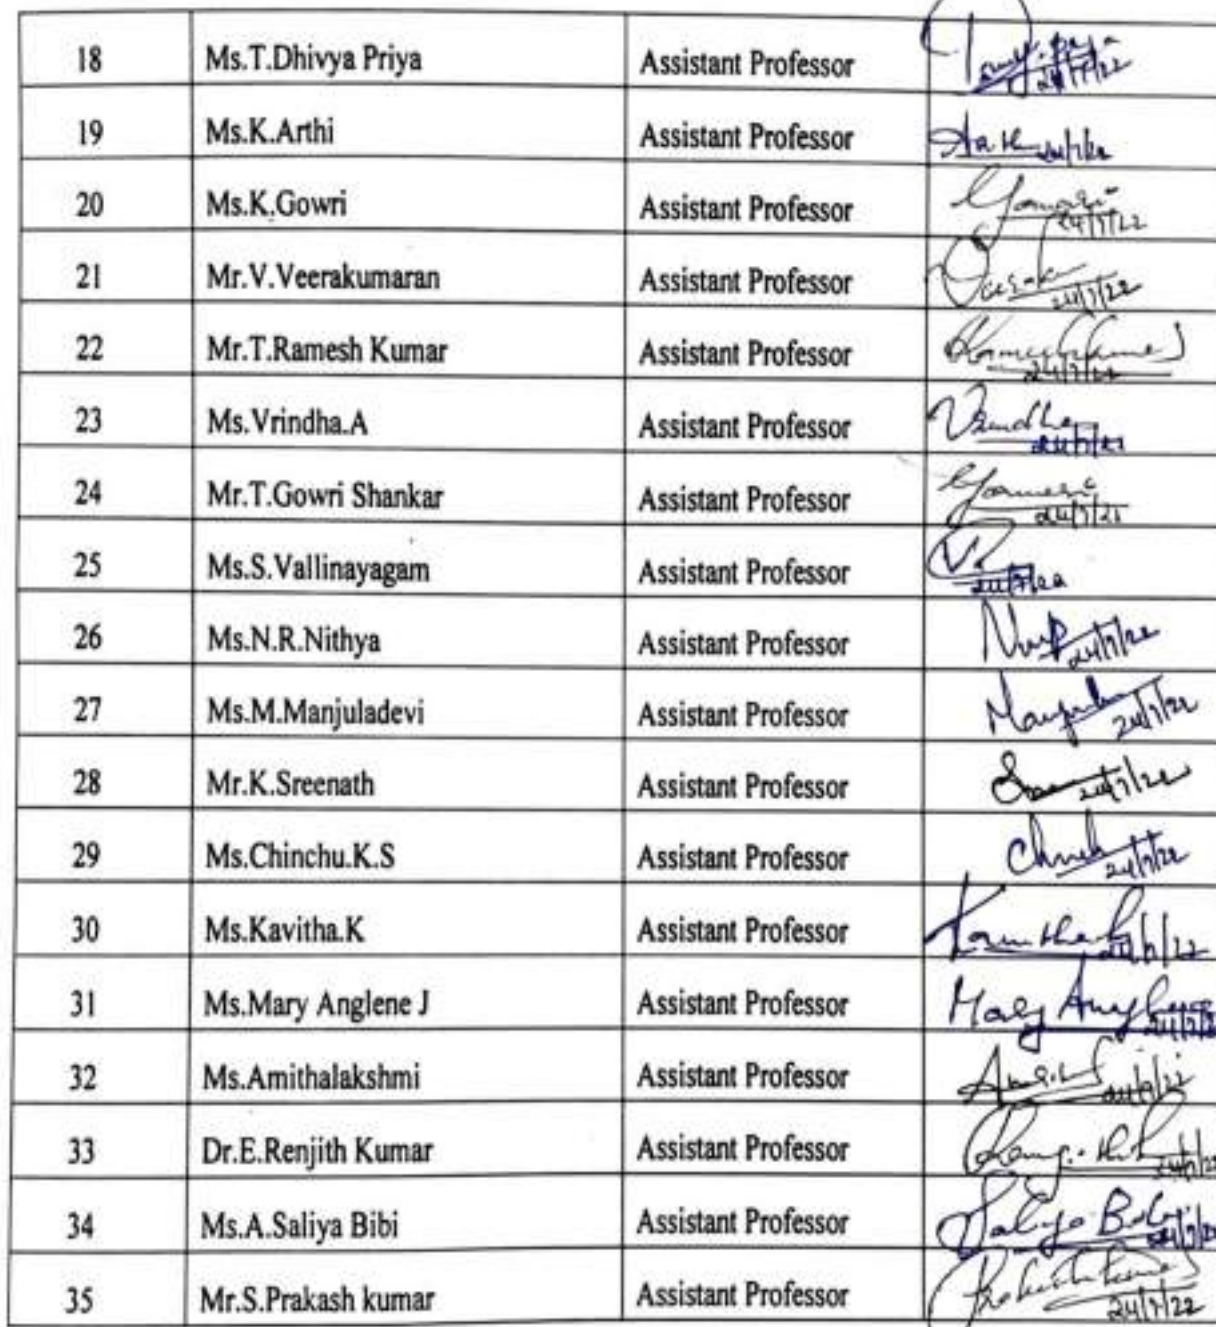 18 Ms.T.Dhivya Priya Assistant Professor
19 Ms.K.Arthi Assistant Professor
20 Ms.K.Gowri Assistant Professor 24/7/22
21 Mr.V.Veerakumaran Assistant Professor 24/7/22
22 Mr.T.Ramesh Kumar Assistant Professor 24/7/22
23 Ms.Vrindha.A Assistant Professor Vrindha
24 Mr.T.Gowri Shankar Assistant Professor
25 Ms.S.Vallinayagam Assistant Professor
26 Ms.N.R.Nithya Assistant Professor 24/7/22
27 Ms.M.Manjuladevi Assistant Professor 24/7/22
28 Mr.K.Sreenath Assistant Professor 24/7/22
29 Ms.Chinchu.K.S Assistant Professor 24/7/22
30 Ms.Kavitha.K Assistant Professor 24/7/22
31 Ms.Mary Anglene J Assistant Professor Mary
32 Ms.Amithalakshmi Assistant Professor
33 Dr.E.Renjith Kumar Assistant Professor
34 Ms.A.Saliya Bibi Assistant Professor
35 Mr.S.Prakash kumar Assistant Professor 24/7/22